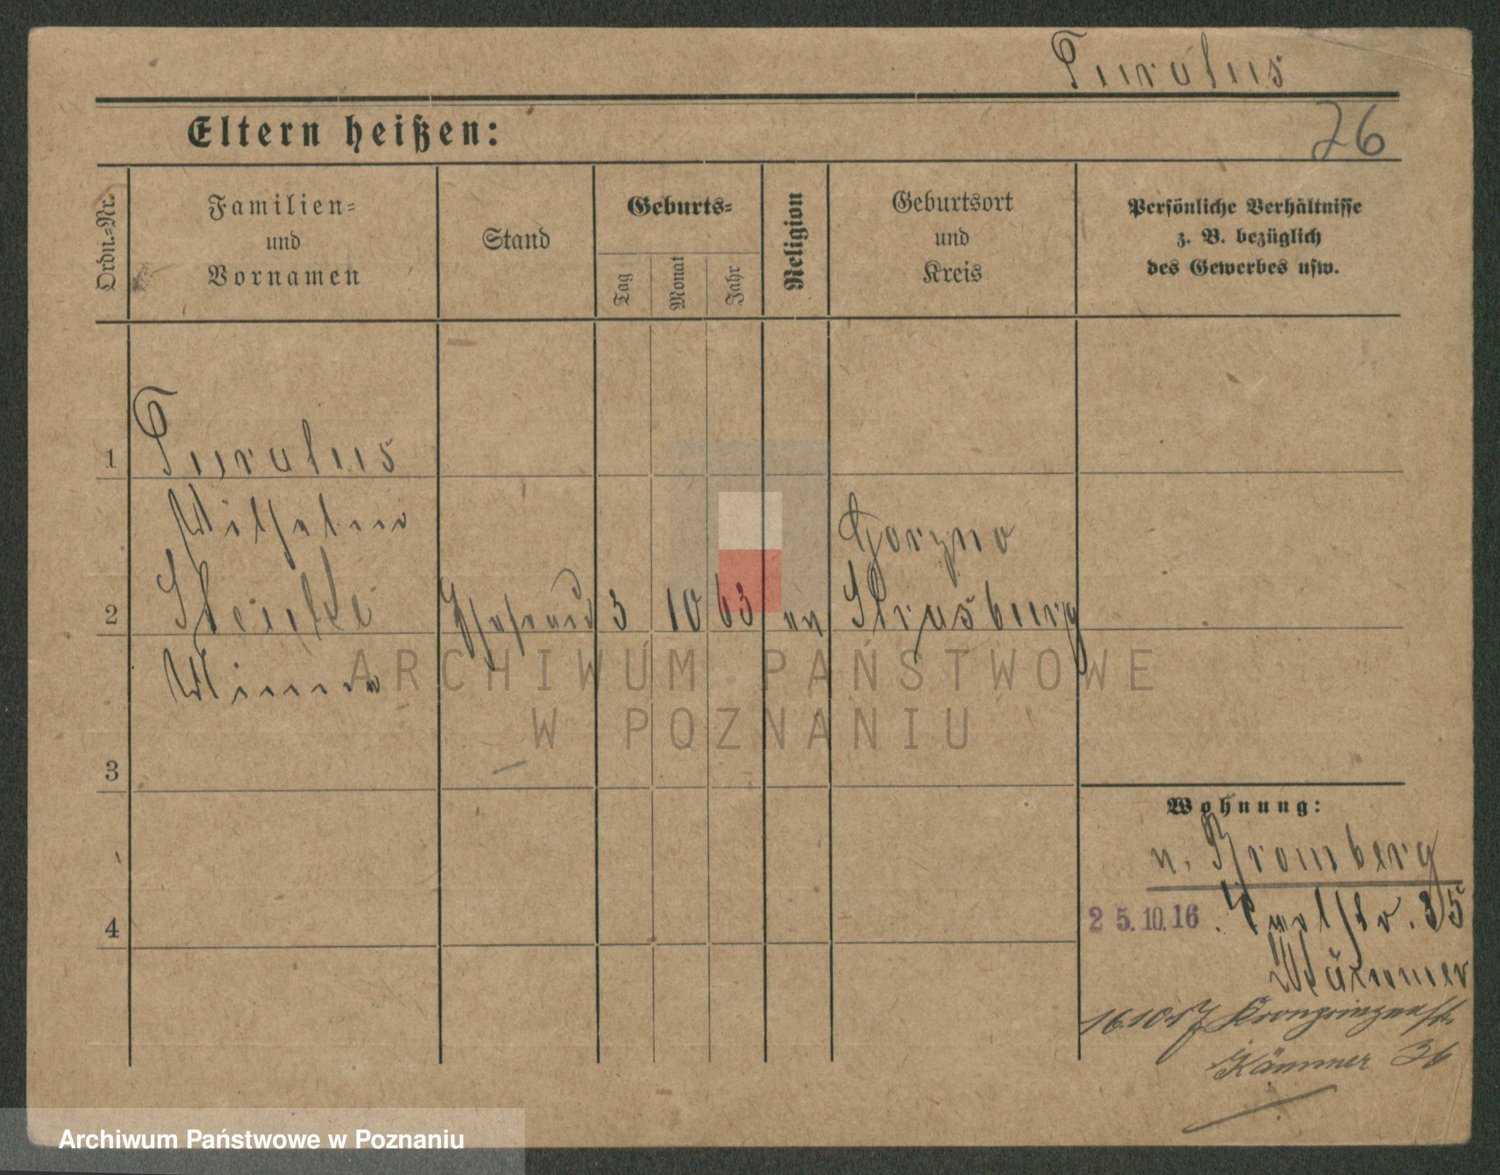 Purolus
Eltern heißen:
26
Ordn.=Nr.
Familien=
und
Vornamen
Stand
Geburts=
Tag
Monat
Jahr
Religion
Geburtsort
und
Kreis
Persönliche Verhältnisse
z. B. bezüglich
des Gewerbes usw.
1
Purolus
Wilhelm
Gorzno
2
3 10 63 ev Strasburg
Minna
ARCHIWUM PAŃSTWOWE
W POZNANIU
3
Wohnung:
n. Bromberg
4
25.10.16. 35
16.10.17 Kronprinzenstr.
Kämmer 36
Archiwum Państwowe w Poznaniu